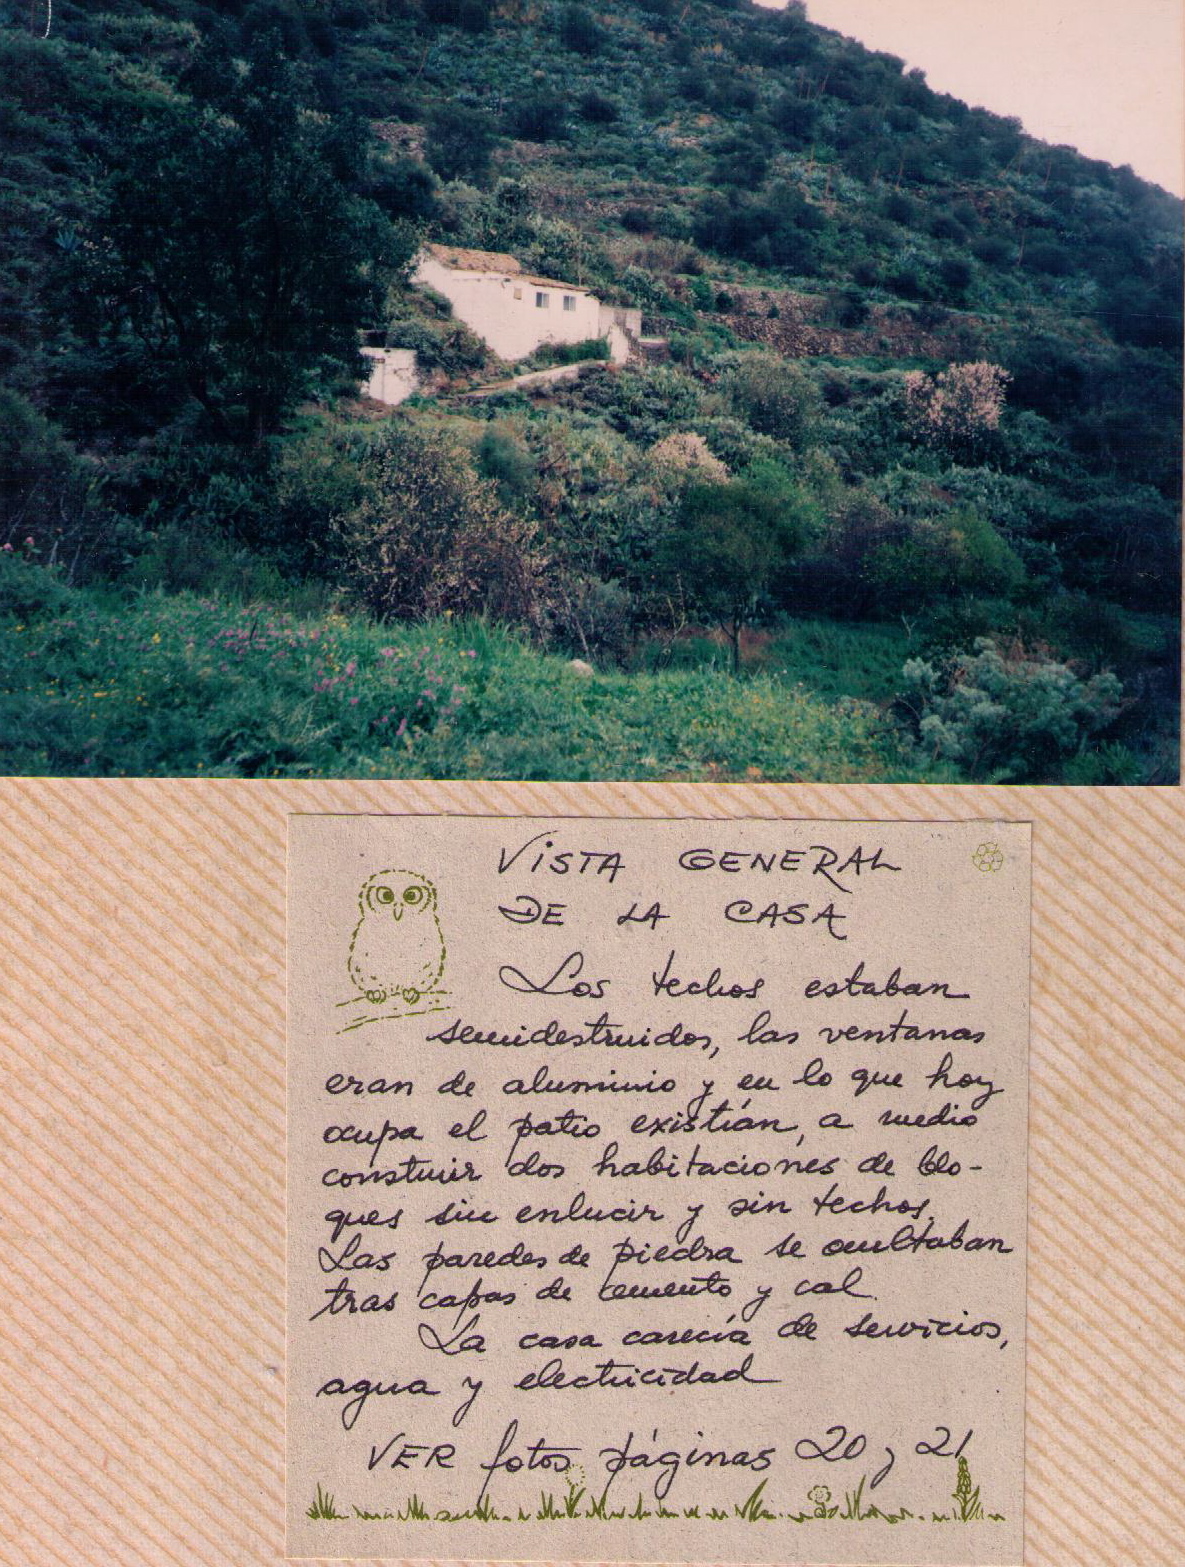 VISTA GENERAL
DE LA CASA
Los techos estaban
semidestruidos, las ventanas
eran de aluminio y en lo que hoy
ocupa el patio existían, a medio
construir dos habitaciones de blo-
ques sin enlucir y sin techos.
Las paredes de piedra se ocultaban
tras capas de cemento y cal.
La casa carecía de servicios,
agua y electricidad
VER fotos páginas 20 y 21